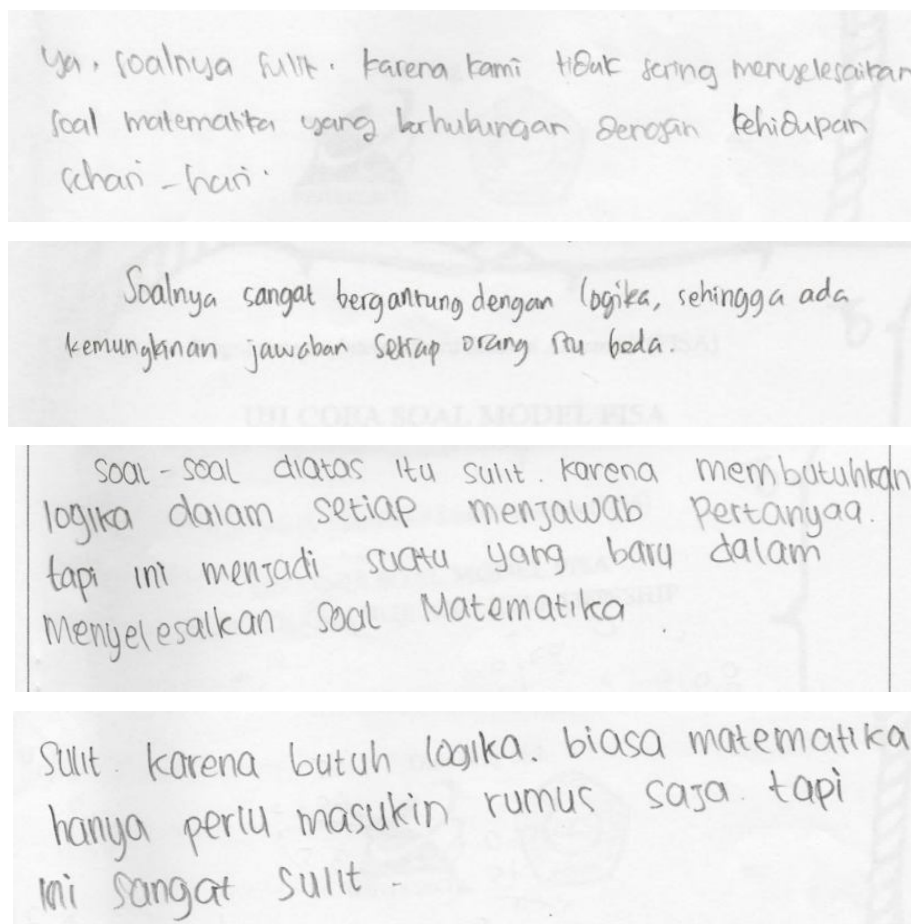 ya, soalnya sulit. karena kami tidak sering menyelesaikan
soal matematika yang berhubungan dengan kehidupan
sehari - hari.
Soalnya sangat bergantung dengan logika, sehingga ada
kemungkinan jawaban setiap orang itu beda.
UJI COBA SOAL MODEL PISA
soal - soal diatas itu sulit. karena membutuhkan
logika dalam setiap menjawab Pertanyaa.
tapi ini menjadi suatu yang baru dalam
Menyelesaikan soal Matematika.
Sulit. karena butuh logika. biasa matematika
hanya perlu masukin rumus saja. tapi
ini sangat sulit.